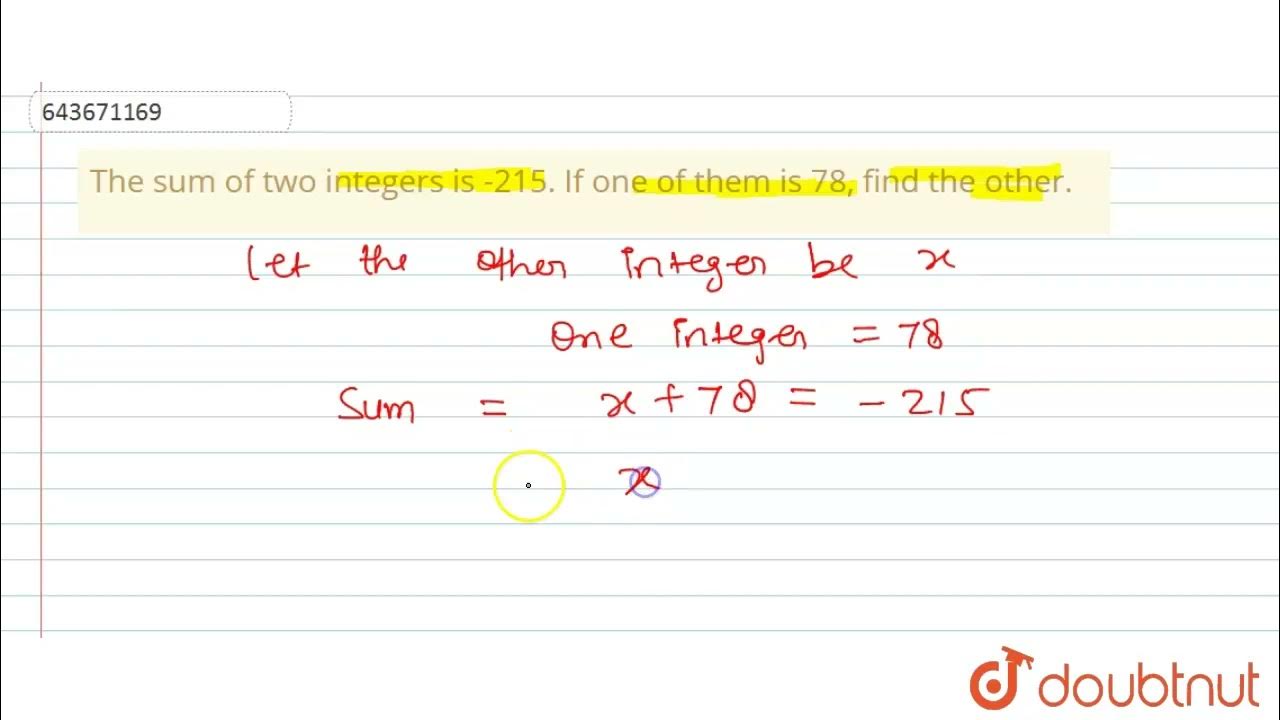 643671169
The sum of two integers is -215. If one of them is 78, find the other.
Let the other integer be x
One integer = 78
Sum = x + 78 = - 215
x
doubtnut